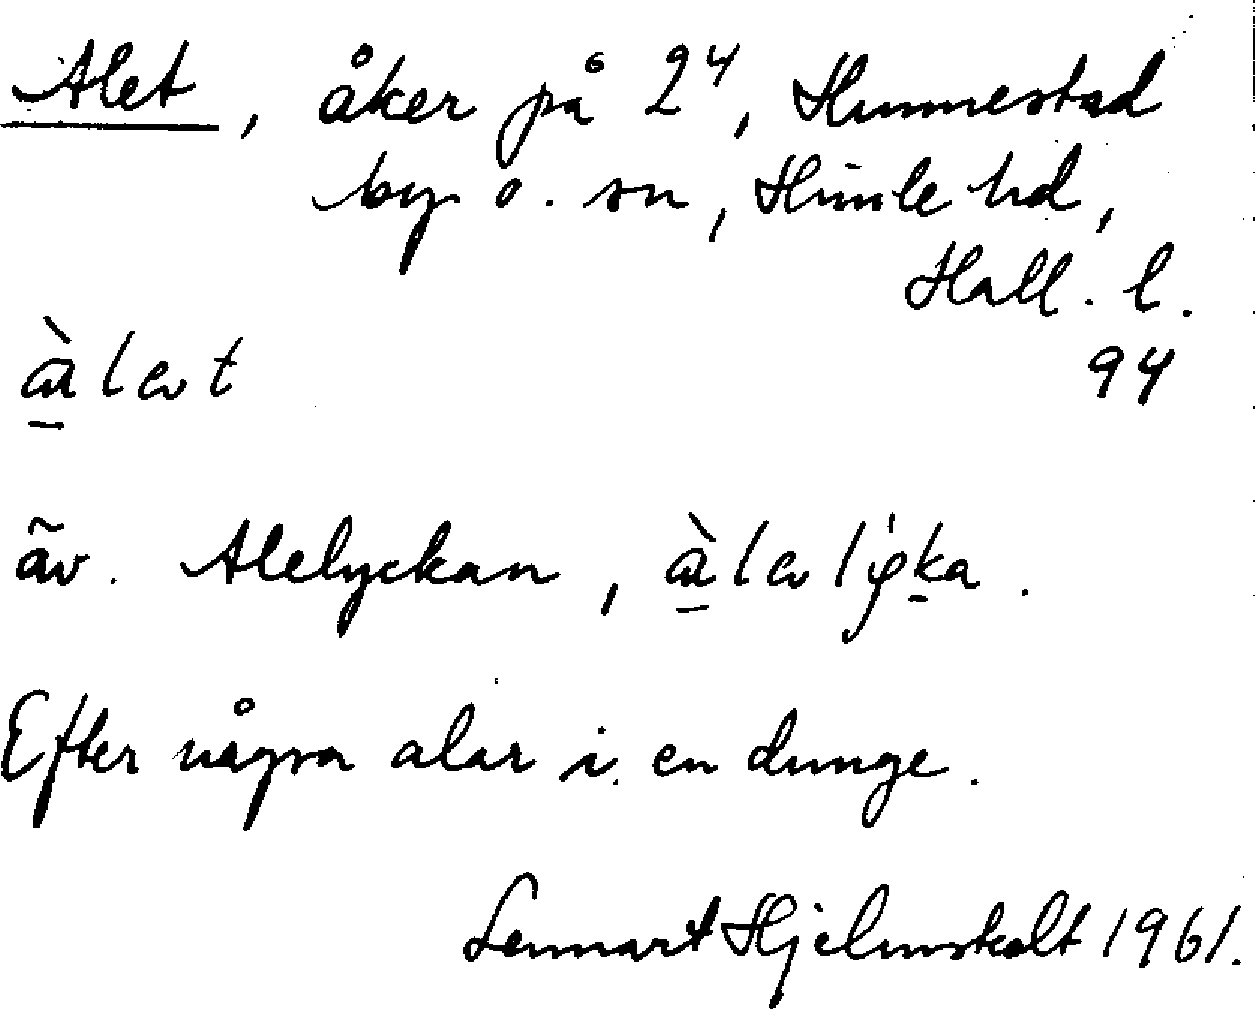 Alet, åker på 2⁴, Hunnestad
by o. sn, Himle hd,
Hall. l.
94
äv. Alelyckan,
Efter några alar i en dunge.
Lennart Hjelmskolt 1961.